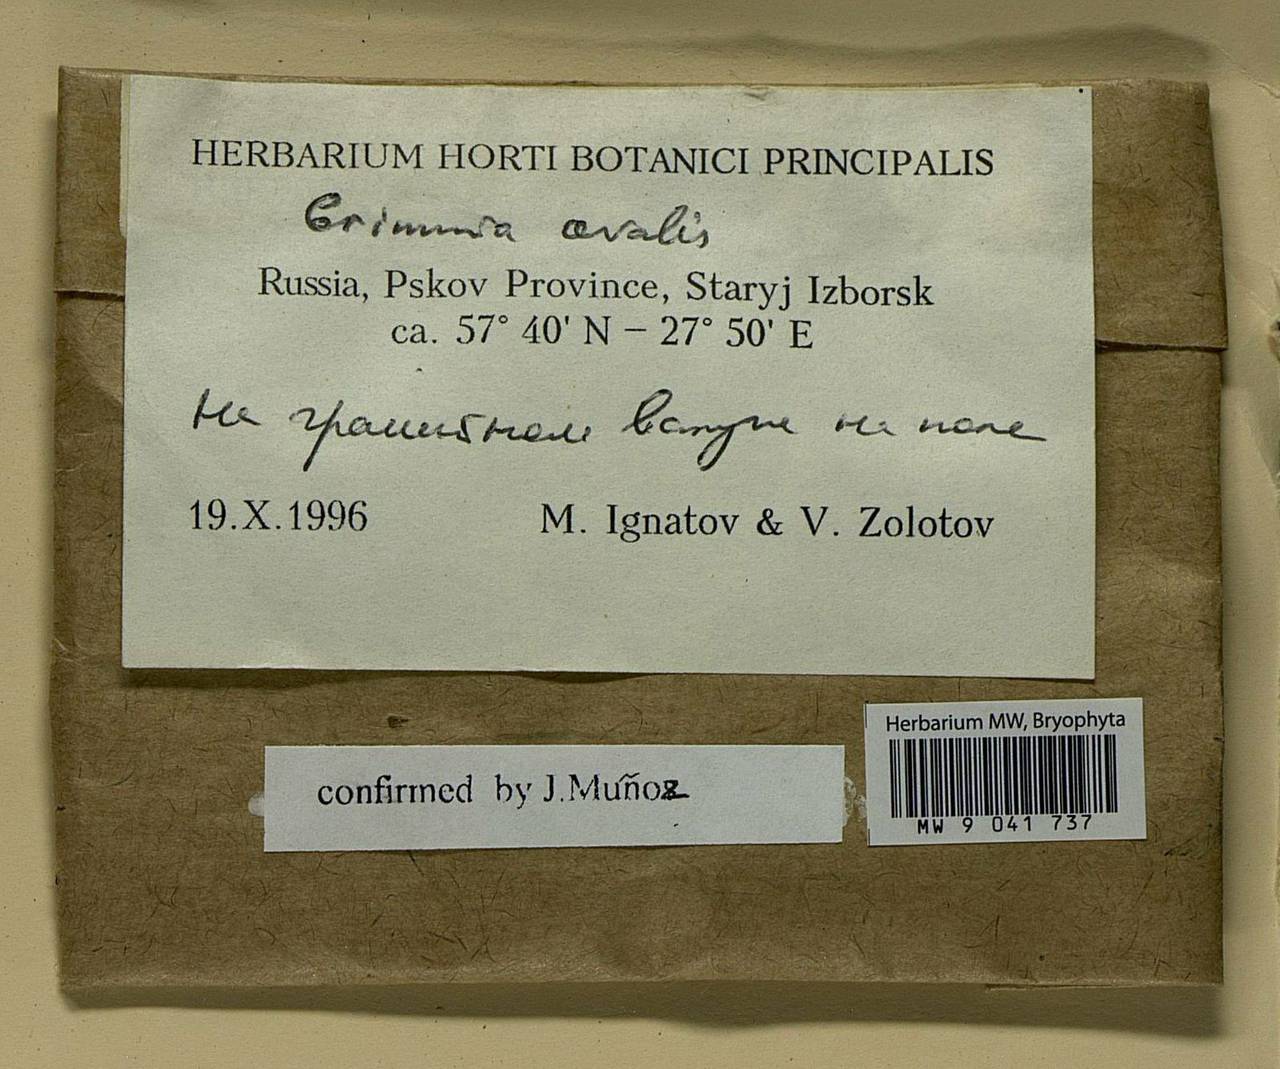 HERBARIUM HORTI BOTANICI PRINCIPALIS
Grimmia ovalis
Russia, Pskov Province, Staryj Izborsk
ca. 57° 40' N – 27° 50' E
На гранитном валуне на поле
19.X.1996 M. Ignatov & V. Zolotov
confirmed by J.Muñoz
Herbarium MW, Bryophyta
MW 9 041 737